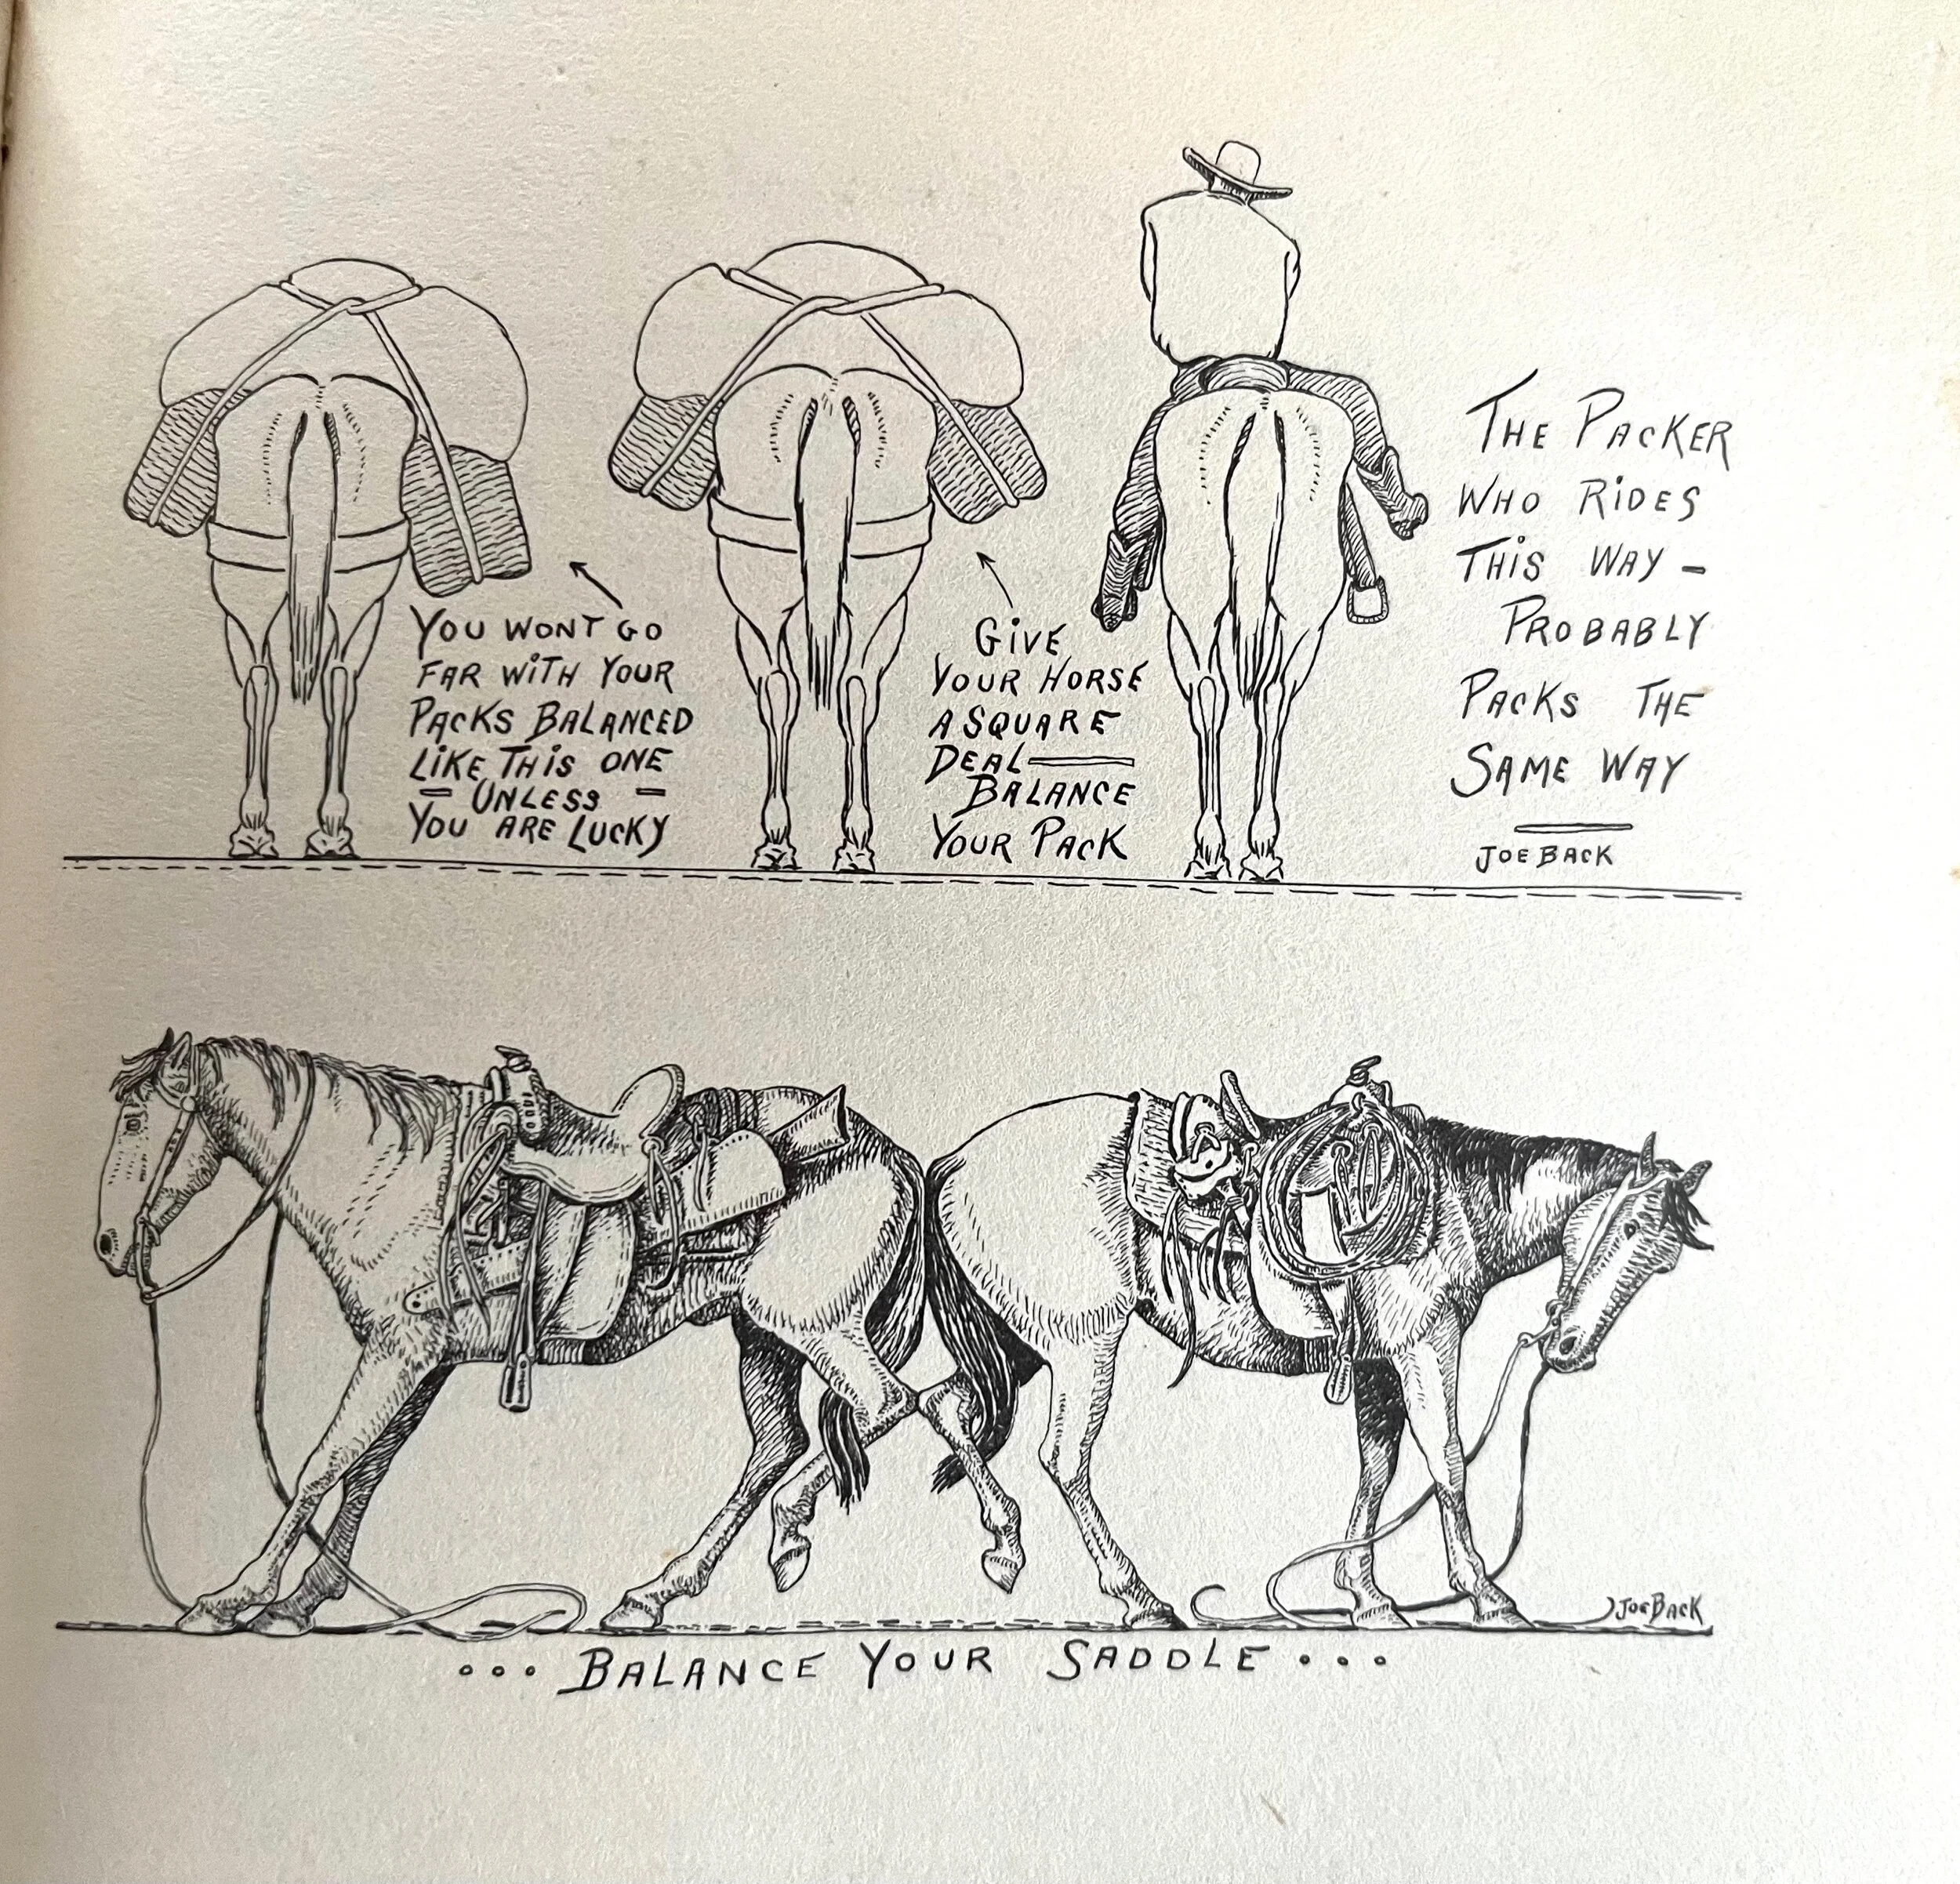 YOU WONT GO
FAR WITH YOUR
PACKS BALANCED
LIKE THIS ONE
— UNLESS —
YOU ARE LUCKY
GIVE
YOUR HORSE
A SQUARE
DEAL —
BALANCE
YOUR PACK
THE PACKER
WHO RIDES
THIS WAY —
PROBABLY
PACKS THE
SAME WAY
JOE BACK
JOE BACK
... BALANCE YOUR SADDLE ...